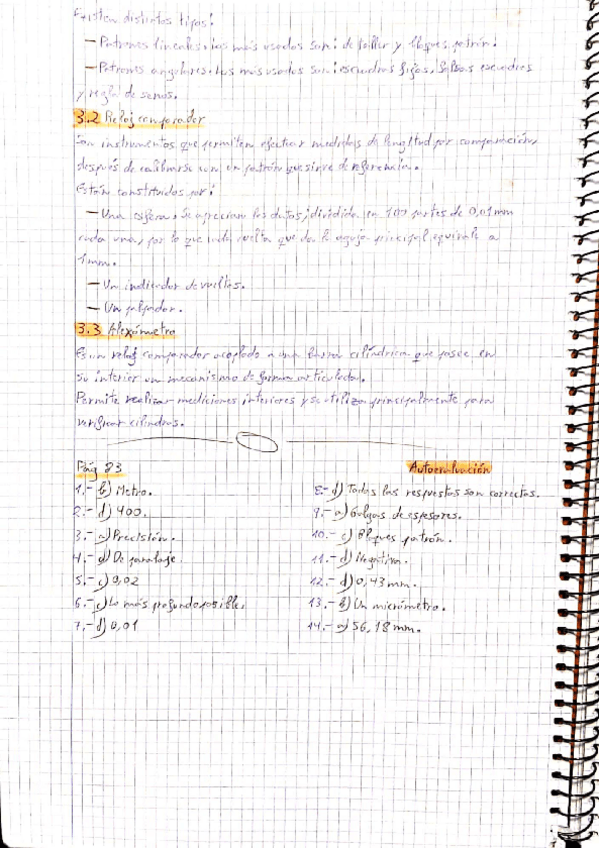 Existen distintos tipos:
— Patrones lineales. Los más usados son: de taller y bloques patrón.
— Patrones angulares. Los más usados son: escuadras fijas, falsas escuadras
y regla de senos.
3.2 Reloj comparador
Son instrumentos que permiten efectuar medidas de longitud por comparación,
después de calibrarse con un patrón que sirve de referencia.
Están constituidos por:
— Una esfera. Se aprecian los datos, dividida en 100 partes de 0,01 mm
cada una, por lo que cada vuelta que da la aguja principal equivale a
1 mm.
— Un indicador de vueltas.
— Un palpador.
3.3 Alexómetro
Es un reloj comparador acoplado a una barra cilíndrica que posee en
su interior un mecanismo de forma articulada.
Permite realizar mediciones interiores y se utiliza principalmente para
verificar cilindros.
Pág 23
Autoevaluación
1.- b) Metro.
2.- d) 400.
3.- a) Precisión.
4.- d) De paralaje.
5.- c) 0,02
6.- c) Lo más profundo posible.
7.- d) 0,01
8.- d) Todas las respuestas son correctas.
9.- a) Galgas de espesores.
10.- c) Bloques patrón.
11.- d) Negativa.
12.- d) 0,43 mm.
13.- b) Un micrómetro.
14.- a) 56,18 mm.